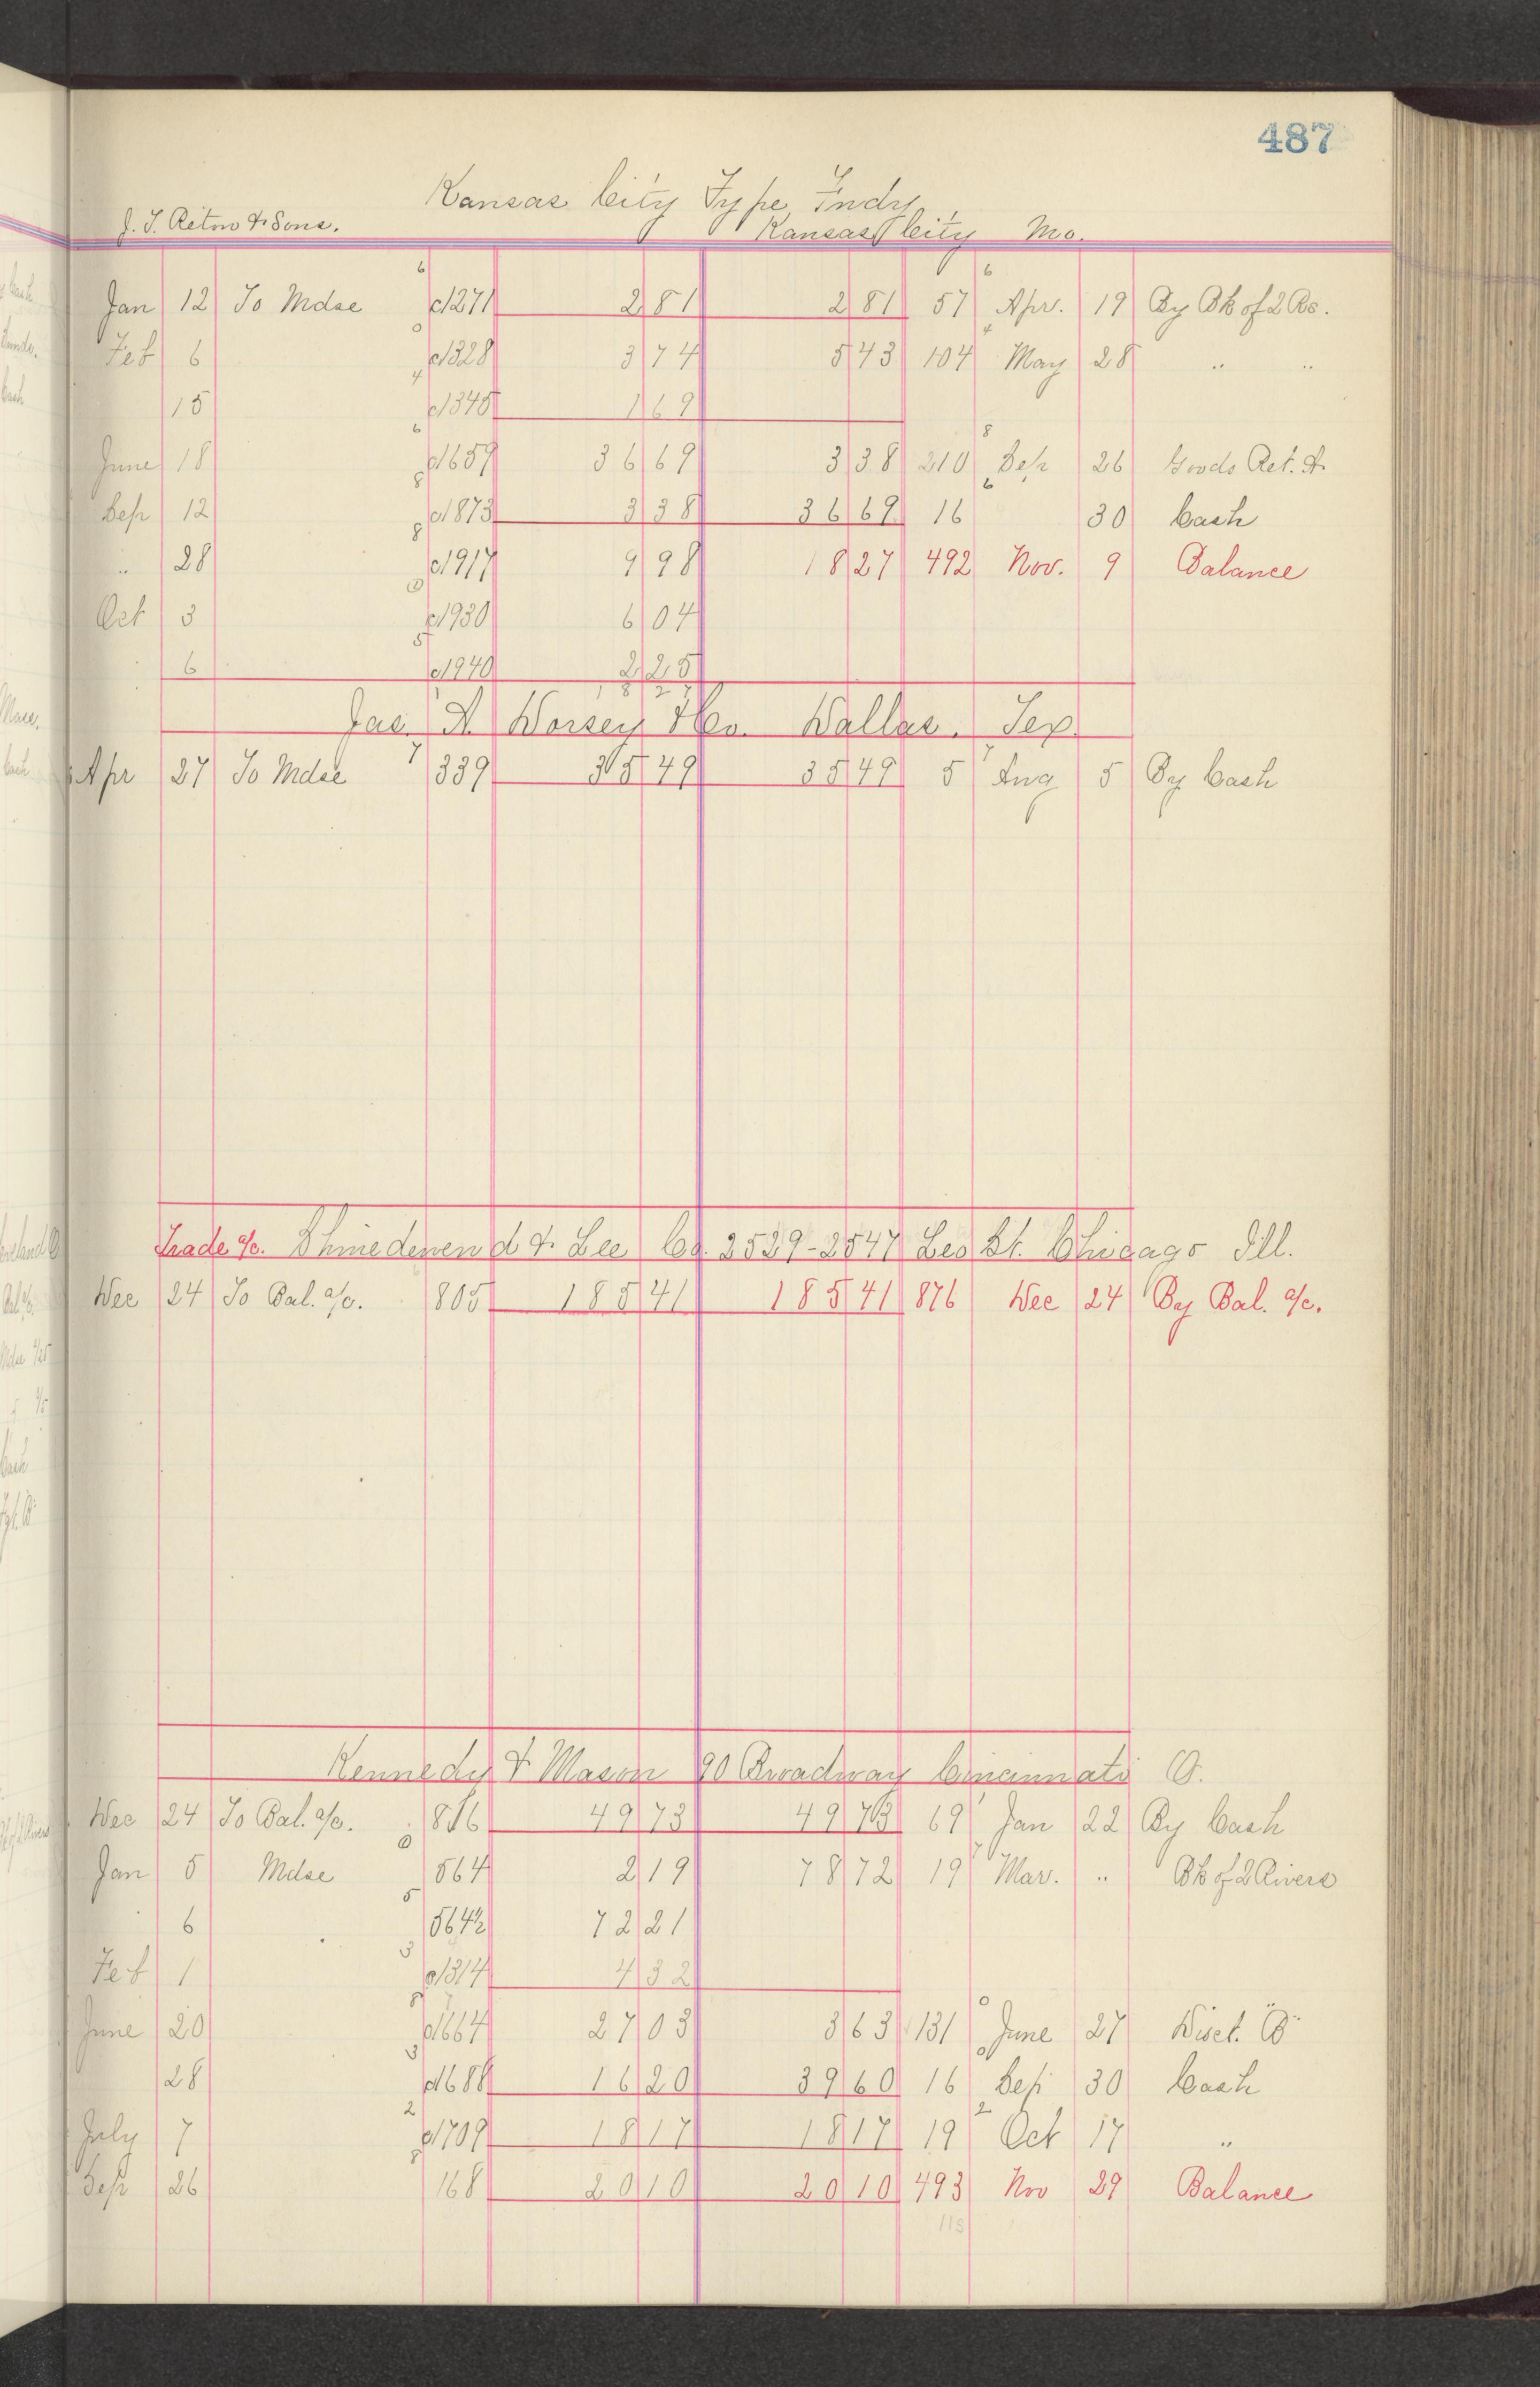 487
Kansas City Type Fndy,
J. T. Reton & Sons. Kansas City Mo.
6 6
Jan 12 To Mdse c1271 2 81 2 81 57 Apr. 19 By Bk of 2 Rs.
Feb 6 c1328 3 74 5 43 104 May 28 " "
15 c1345 1 69
June 18 c1659 36 69 3 38 210 Sep 26 Goods Ret. A
Sep 12 c1873 3 38 36 69 16 30 Cash
" 28 c1917 9 98 18 27 492 Nov. 9 Balance
Oct 3 c1930 6 04
6 c1940 2 25
18 27
Jas. A. Dorsey & Co. Dallas, Tex.
Apr 27 To Mdse 339 35 49 35 49 5 Aug 5 By Cash
Trade a/c. Shniedewend & Lee Co. 2529-2547 Leo St. Chicago Ill.
Dec 24 To Bal. a/c. 805 185 41 185 41 876 Dec 24 By Bal. a/c.
Kennedy & Mason 90 Broadway Cincinnati O.
Dec 24 To Bal. a/c. 816 49 73 49 73 69 Jan 22 By Cash
Jan 5 Mdse 564 2 19 78 72 19 Mar. " Bk of 2 Rivers
6 564½ 72 21
Feb 1 c1314 4 32
June 20 c1664 27 03 3 63 131 June 27 Disct. "B"
28 c1688 16 20 39 60 16 Sep 30 Cash
July 7 c1709 18 17 18 17 19 Oct 17 "
Sep 26 168 20 10 20 10 493 Nov 29 Balance
118